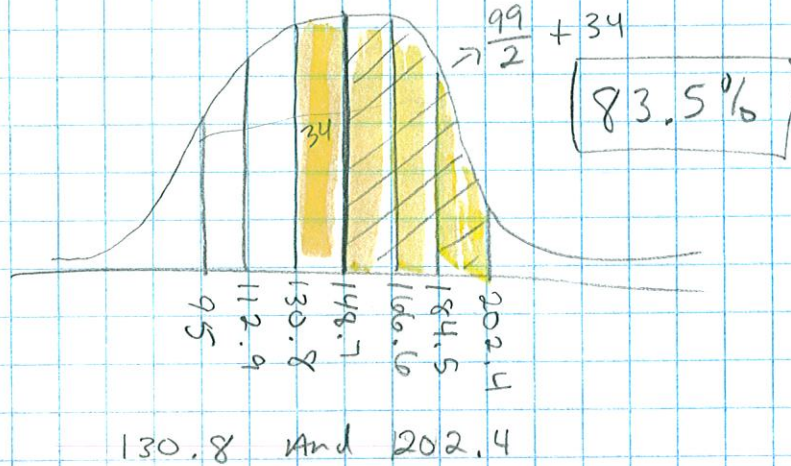 → 99/2 + 34
83.5%
34
95 112.9 130.8 148.7 166.6 184.5 202.4
130.8 And 202.4